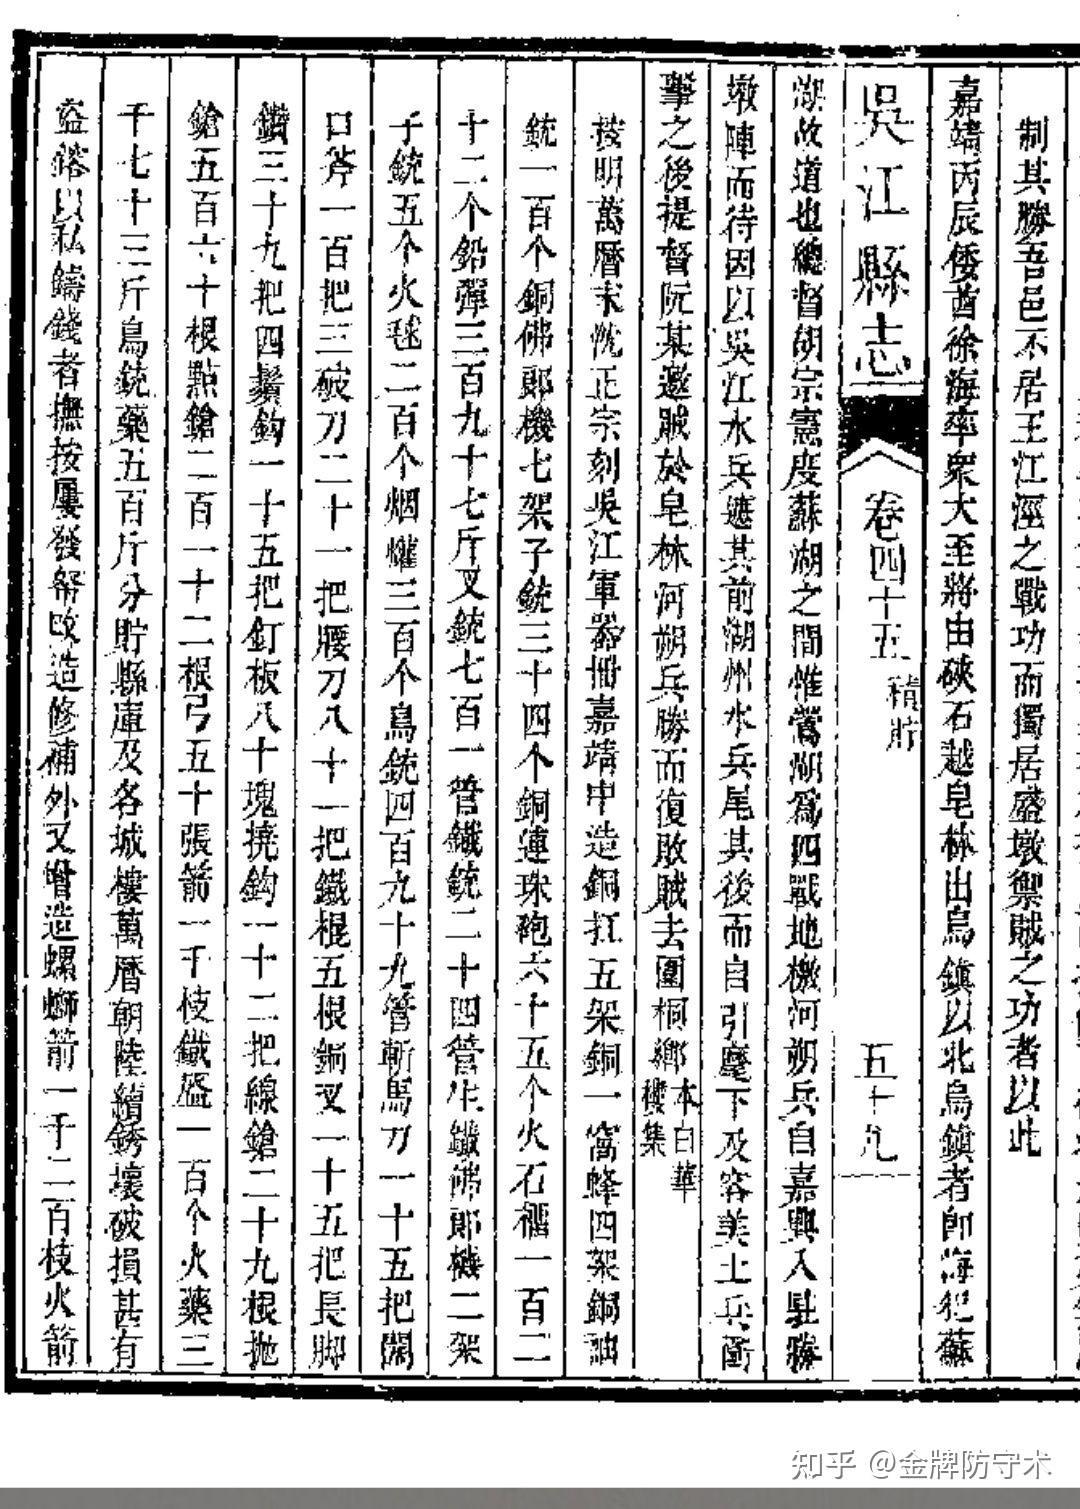 制其勝吾邑不居王江涇之戰功而獨居盛墩禦賊之功者以此
嘉靖丙辰倭酋徐海率衆大至將由硤石越皂林出烏鎮以北烏鎮者卽海犯蘇
吳江縣志
卷四十五
積貯
五十九
湖故道也總督胡宗憲度蘇湖之間惟鶯湖爲四戰地檄河朔兵自嘉興入駐勝
墩陣而待因以吳江水兵遮其前湖州水兵尾其後而自引麾下及容美土兵衝
擊之後提督阮某邀賊於皂林河朔兵勝而復敗賊去圍桐鄉
本白華
樓集
按明萬曆末沈正宗刻吳江軍器冊嘉靖中造銅扛五架銅一窩蜂四架銅
銃一百个銅佛郞機七架子銃三十四个銅連珠砲六十五个火石榴一百二
十二个鉛彈三百九十七斤又銃七百一管鐵銃二十四管生鐵佛郞機二架
子銃五个火毬二百个烟罐三百个鳥銃四百九十九管斬馬刀一十五把開
口斧一百把三破刀二十一把腰刀八十一把鐵棍五根鋼叉一十五把長脚
鑽三十九把四鬚鈎一十五把釘板八十塊撓鈎一十二把線鎗二十九根抛
鎗五百六十根點鎗二百一十二根弓五十張箭一千枝鐵盔一百个火藥三
千七十三斤鳥銃藥五百斤分貯縣庫及各城樓萬曆朝陸續銹壞破損甚有
盜鎔以私鑄錢者撫按屢發帑改造修補外又增造螺螄箭一千二百枝火箭
知乎 @金牌防守术